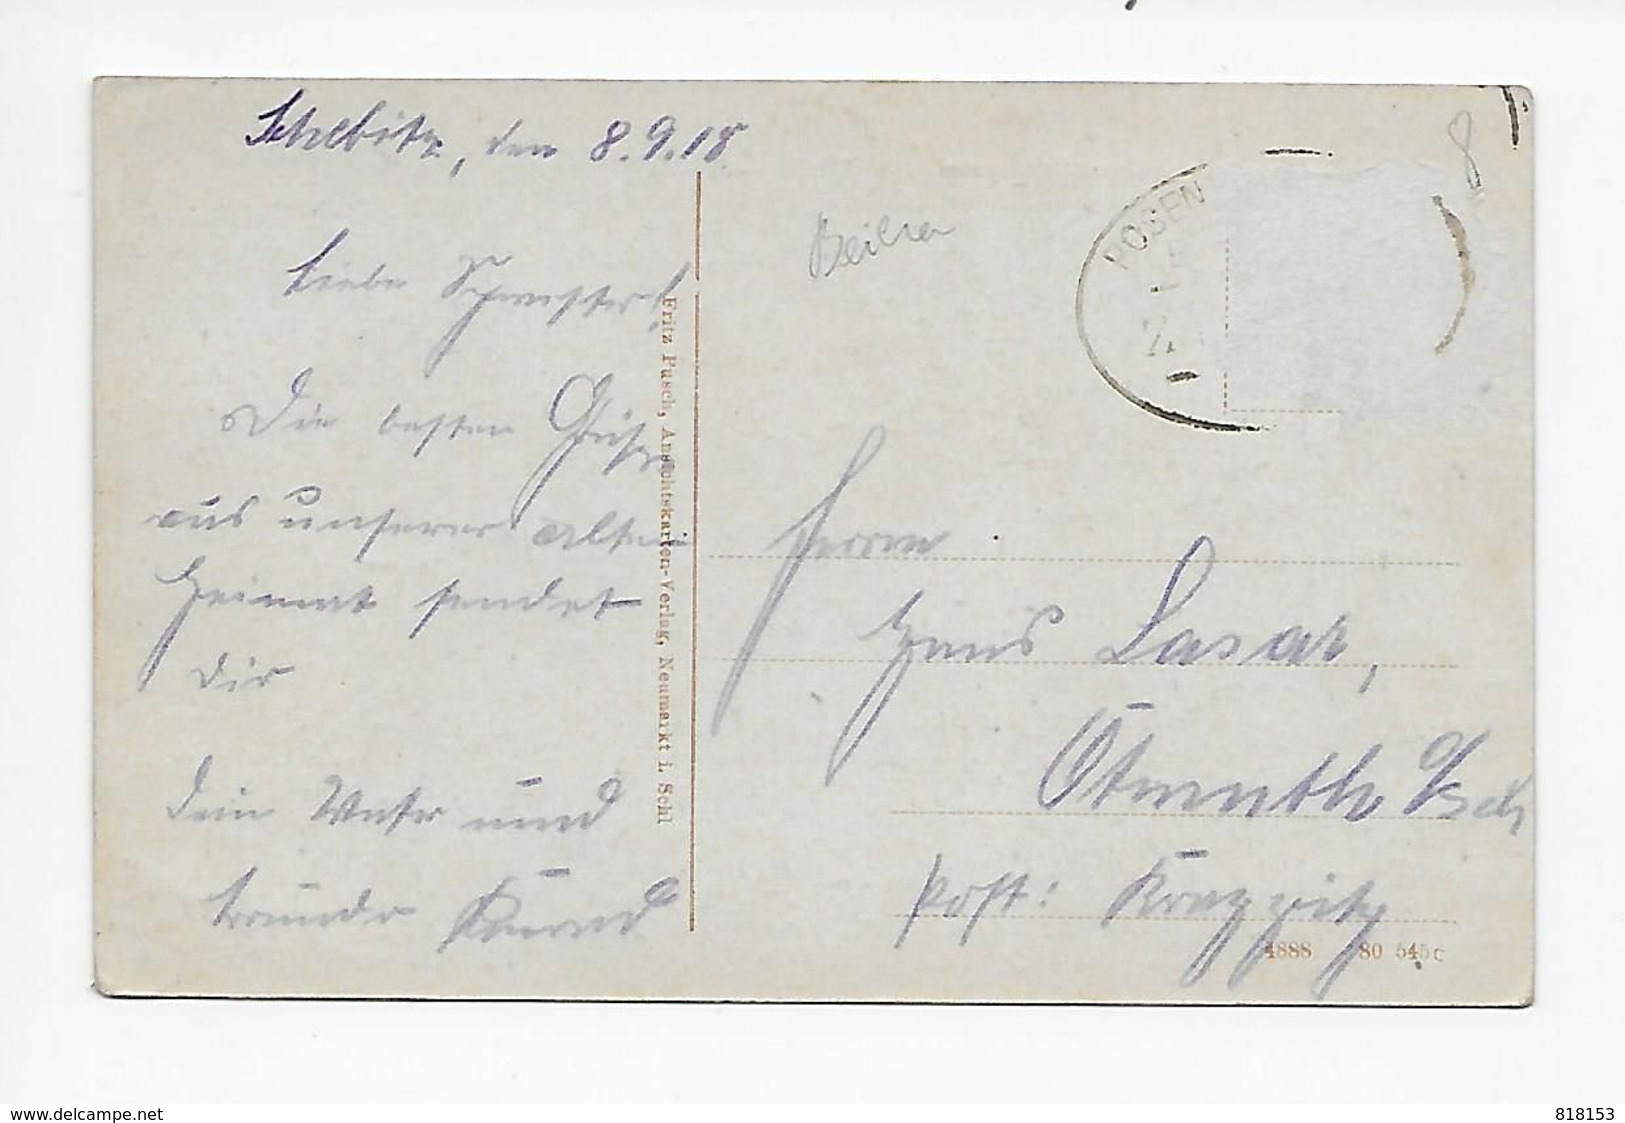 Schebitz, den 8.9.18
Liebe Schwester!
Die besten Grüße
aus unserer alten
Heimat sendet
Dir
Dein Vater und
Bruder Konrad
Fritz Pusch, Ansichtskarten-Verlag, Neumarkt i. Schl
POSEN
8
Herrn
Hans Lasar,
Otmuth O/Sch
Post: Krappitz
4888 80 545c
www.delcampe.net
818153